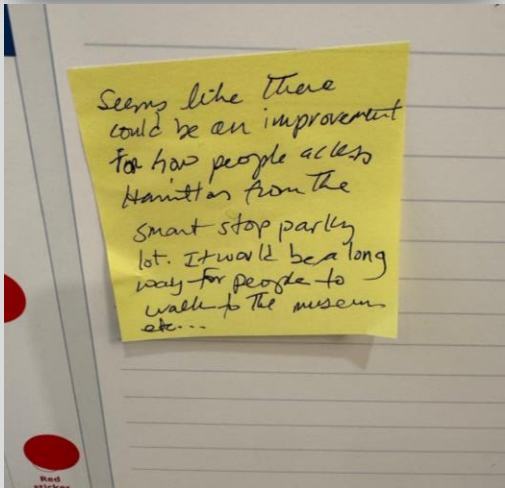 Seems like there
could be an improvement
for how people access
Hamilton from the
smart stop parking
lot. It would be a long
way for people to
walk to the museum
etc...
Red
sticker